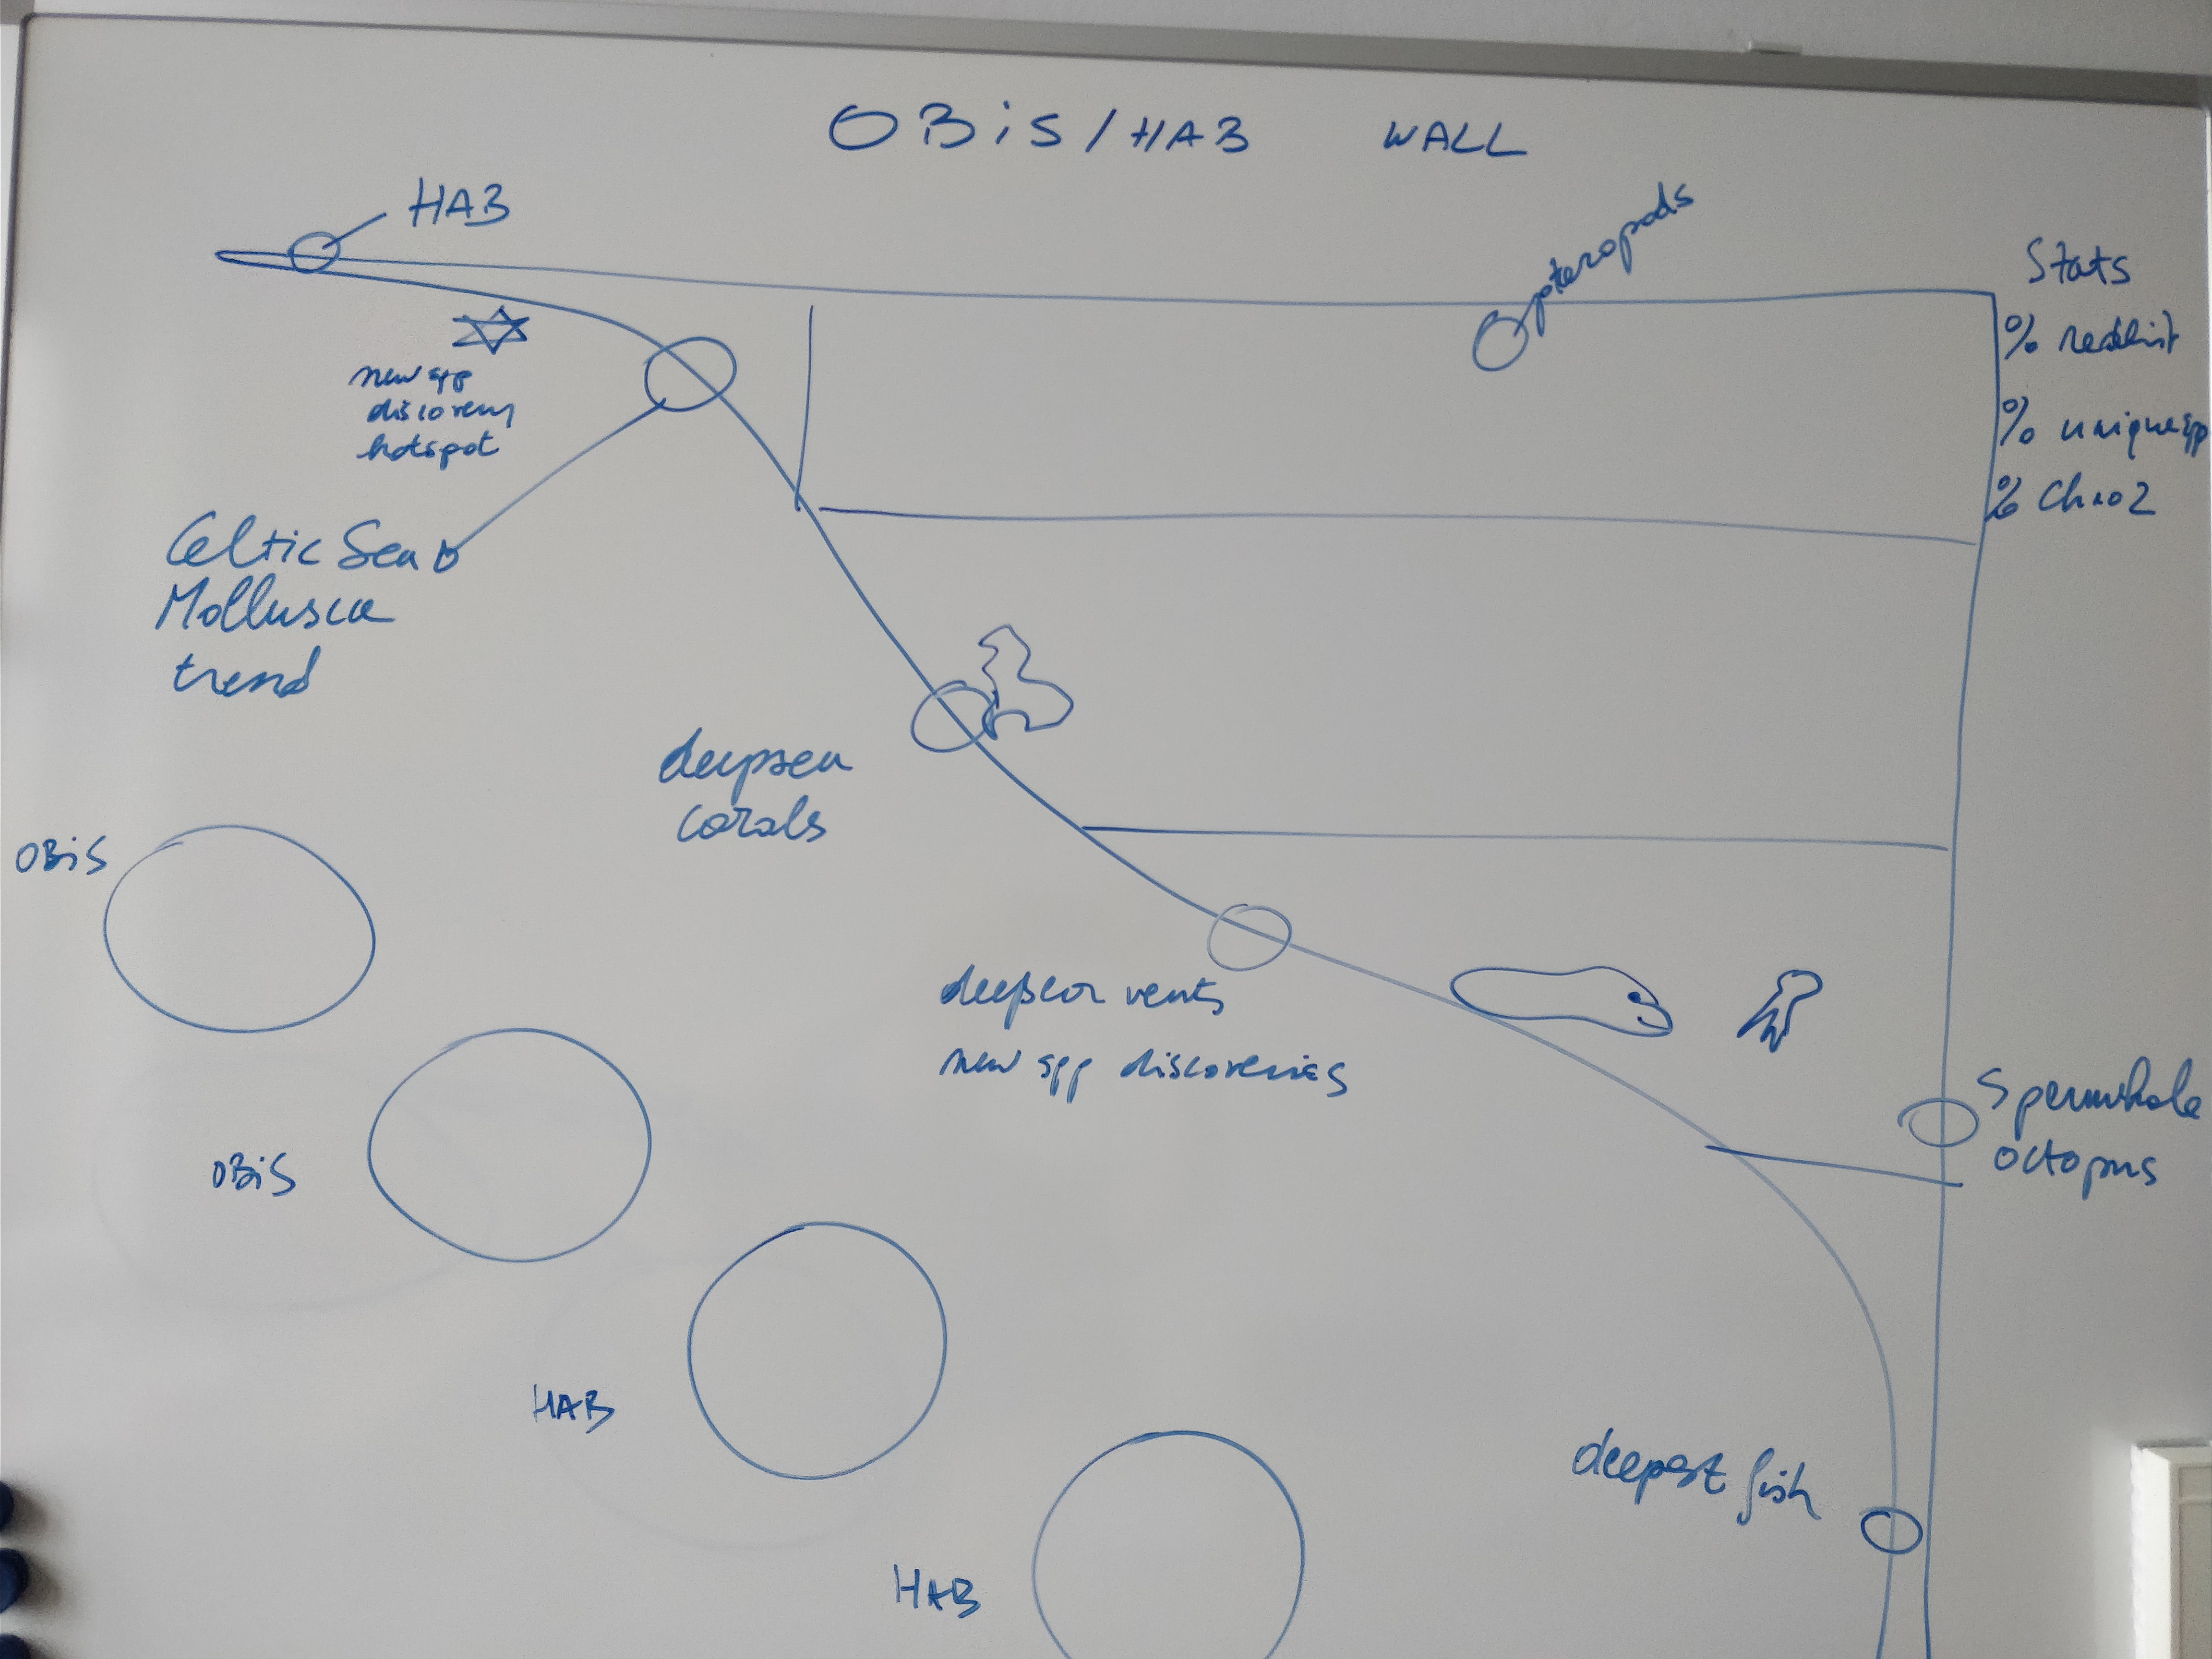 OBiS/HAB WALL
HAB
pteropods
Stats
% redlist
% unique spp
% Chao2
new spp
discovery
hotspot
Celtic Sea
Mollusca
trend
deepsea
corals
OBiS
deepsea vents
new spp discoveries
OBiS
Spermwhale
octopus
HAB
deepest fish
HAB